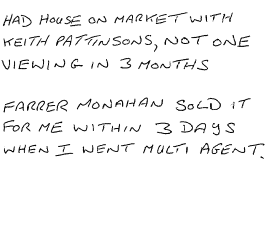 HAD HOUSE ON MARKET WITH
KEITH PATTINSONS, NOT ONE
VIEWING IN 3 MONTHS
FARRER MONAHAN SOLD IT
FOR ME WITHIN 3 DAYS
WHEN I WENT MULTI AGENT.